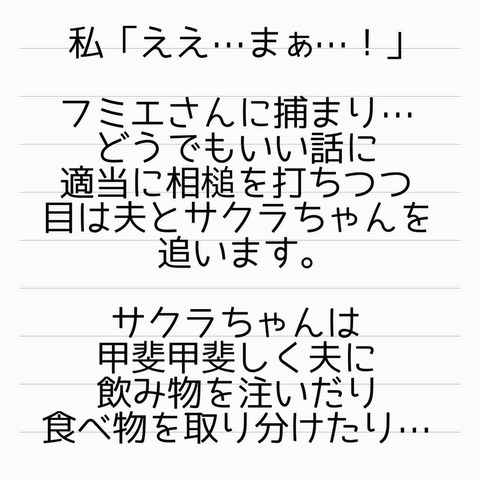 私「ええ…まぁ…！」
フミエさんに捕まり…
どうでもいい話に
適当に相槌を打ちつつ
目は夫とサクラちゃんを
追います。
サクラちゃんは
甲斐甲斐しく夫に
飲み物を注いだり
食べ物を取り分けたり…